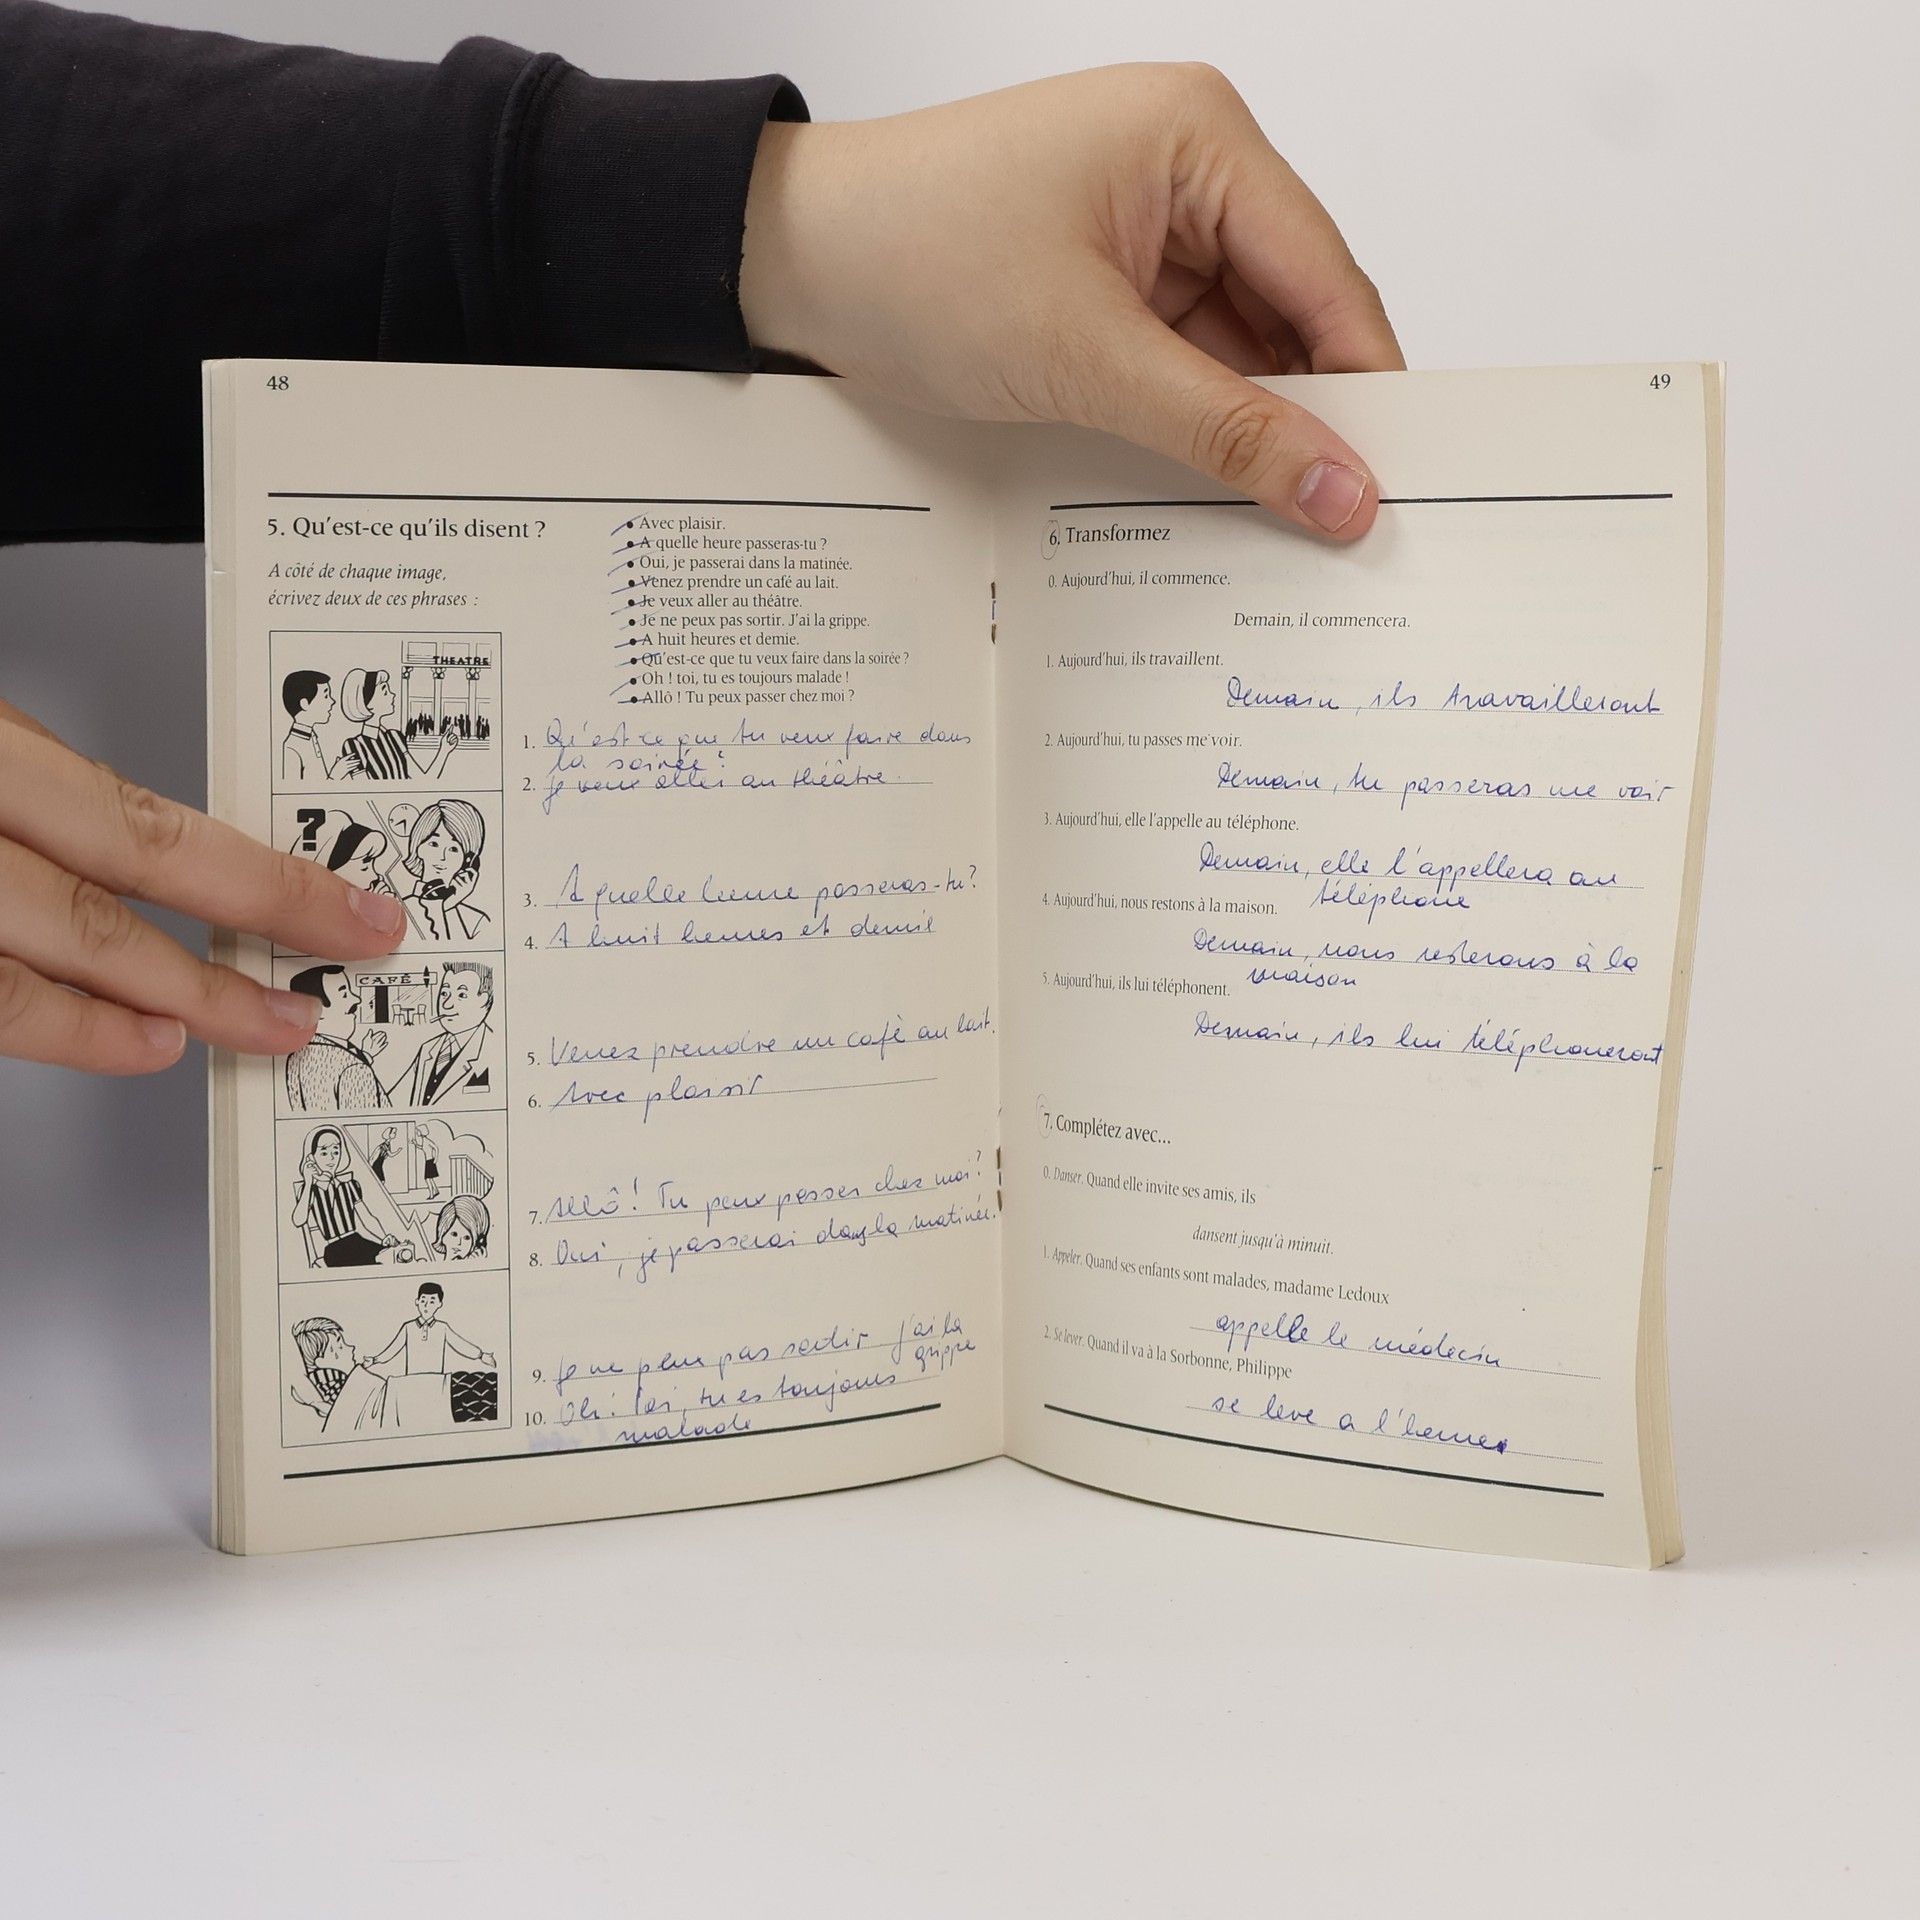 48
5. Qu'est-ce qu'ils disent ?
A côté de chaque image,
écrivez deux de ces phrases :
• Avec plaisir.
• A quelle heure passeras-tu ?
• Oui, je passerai dans la matinée.
• Venez prendre un café au lait.
• Je veux aller au théâtre.
• Je ne peux pas sortir. J'ai la grippe.
• A huit heures et demie.
• Qu'est-ce que tu veux faire dans la soirée ?
• Oh ! toi, tu es toujours malade !
• Allô ! Tu peux passer chez moi ?
THEATRE
1. Qu'est-ce que tu veux faire dans
la soirée ?
2. Je veux aller au théâtre.
?
3. A quelle heure passeras-tu ?
4. A huit heures et demie
CAFÉ
5. Venez prendre un café au lait.
6. Avec plaisir
7. Allô ! Tu peux passer chez moi ?
8. Oui, je passerai dans la matinée.
9. Je ne peux pas sortir j'ai la
grippe
10. Oh ! toi, tu es toujours
malade
49
6. Transformez
0. Aujourd'hui, il commence.
Demain, il commencera.
1. Aujourd'hui, ils travaillent.
Demain, ils travailleront
2. Aujourd'hui, tu passes me voir.
Demain, tu passeras me voir
3. Aujourd'hui, elle l'appelle au téléphone.
Demain, elle l'appellera au
téléphone
4. Aujourd'hui, nous restons à la maison.
Demain, nous resterons à la
maison
5. Aujourd'hui, ils lui téléphonent.
Demain, ils lui téléphoneront
7. Complétez avec...
0. Danser. Quand elle invite ses amis, ils
dansent jusqu'à minuit.
1. Appeler. Quand ses enfants sont malades, madame Ledoux
appelle le médecin
2. Se lever. Quand il va à la Sorbonne, Philippe
se leve a l'heure